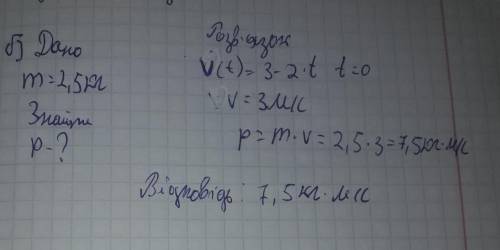 б) Дано
m = 2,5 кг
Знайти
p - ?
Розв'язок
v(t) = 3 - 2 · t t = 0
v = 3 м/с
p = m · v = 2,5 · 3 = 7,5 кг · м/с
Відповідь : 7,5 кг · м/с